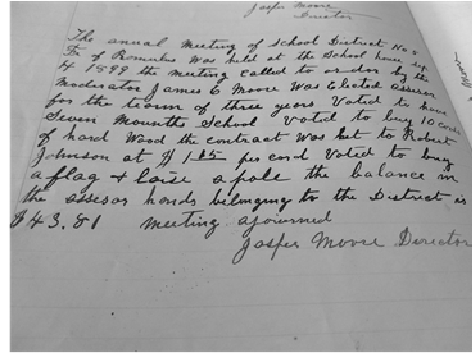 Jasper Moore
Director
The annual Meeting of School District No 5
Fr of Romulus Was held at the School house Sep
4 1899 the meeting called to order by the
Moderator James C Moore Was Elected assesor
for the tearm of three years Voted to have
Seven Mounths School Voted to buy 10 cords
of hard Wood the contract Was let to Robert
Johnson at $ 1 per cord Voted to buy
a flag & raise a pole the balance in
the assesor hands belonging to the District is
$43.81 meeting ajourned
Jasper Moore Director